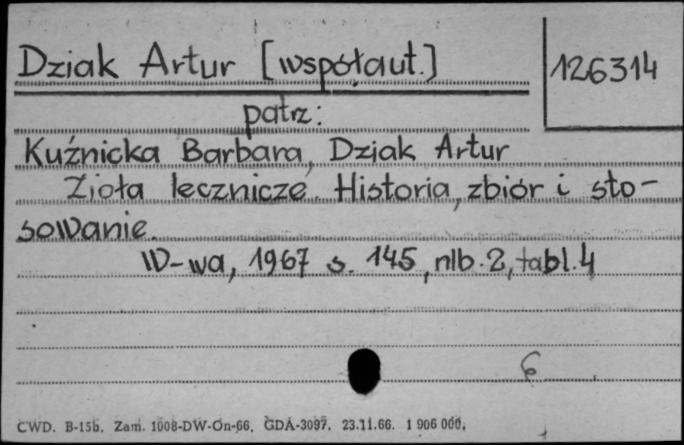 Dziak Artur [współaut.]
126314
patrz:
Kuźnicka Barbara, Dziak Artur
Zioła lecznicze. Historia, zbiór i sto-
sowanie.
W-wa, 1967 s. 145, nlb. 2, tabl. 4
6
CWD. B-15b. Zam. 1008-DW-On-66. GDA-3097. 23.11.66. 1 906 000.